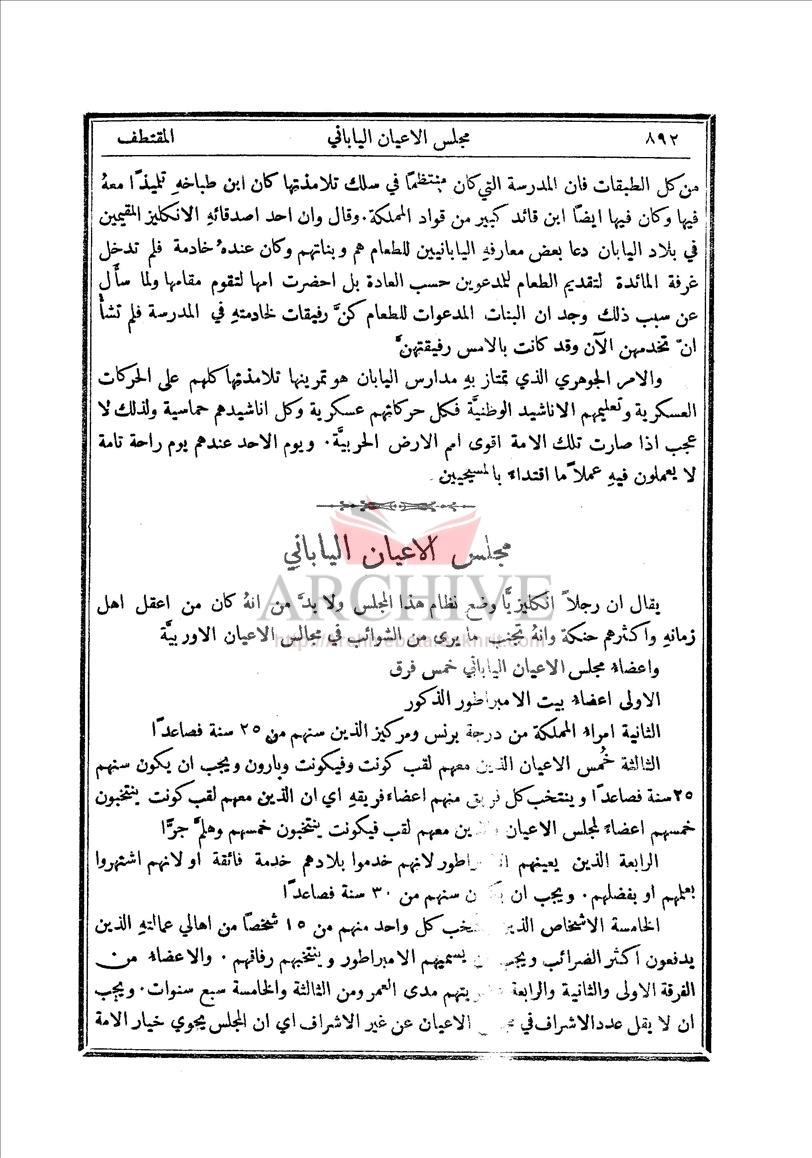 ٨٩٢ مجلس الاعيان الياباني المقتطف
من كل الطبقات فان المدرسة التي كان منتظمًا في سلك تلامذتها كان ابن طباخهِ تلميذًا معهُ
فيها وكان فيها ايضًا ابن قائد كبير من قواد المملكة. وقال وان احد اصدقائهِ الانكليز المقيمين
في بلاد اليابان دعا بعض معارفهِ اليابانيين للطعام هم وبناتهم وكان عندهُ خادمة فلم تدخل
غرفة المائدة لتقديم الطعام للمدعوين حسب العادة بل احضرت امها لتقوم مقامها ولما سأل
عن سبب ذلك وجد ان البنات المدعوات للطعام كنَّ رفيقات لخادمتهِ في المدرسة فلم تشأ
ان تخدمهن الآن وقد كانت بالامس رفيقتهنَّ
والامر الجوهري الذي تمتاز بهِ مدارس اليابان هو تمرينها تلامذتها كلهم على الحركات
العسكرية وتعليمهم الاناشيد الوطنيَّة فكل حركاتهم عسكرية وكل اناشيدهم حماسية ولذلك لا
عجب اذا صارت تلك الامة اقوى امم الارض الحربيَّة. ويوم الاحد عندهم يوم راحة تامة
لا يعملون فيهِ عملاً ما اقتداء بالمسيحيين
مجلس الاعيان الياباني
ARCHIVE
يقال ان رجلاً انكليزيًّا وضع نظام هذا المجلس ولا بدَّ من انهُ كان من اعقل اهل
زمانهِ واكثرهم حنكة وانهُ تجنب ما يرى من الشوائب في مجالس الاعيان الاوربيَّة
واعضاء مجلس الاعيان الياباني خمس فرق
الاولى اعضاء بيت الامبراطور الذكور
الثانية امراء المملكة من درجة برنس ومركيز الذين سنهم من ٢٥ سنة فصاعدًا
الثالثة خُمس الاعيان الذين معهم لقب كونت وفيكونت وبارون ويجب ان يكون سنهم
٢٥ سنة فصاعدًا وينتخب كل فريق منهم اعضاء فريقهِ اي ان الذين معهم لقب كونت ينتخبون
خمسهم اعضاء لمجلس الاعيان والذين معهم لقب فيكونت ينتخبون خمسهم وهلمَّ جرًّا
الرابعة الذين يعينهم الامبراطور لانهم خدموا بلادهم خدمة فائقة او لانهم اشتهروا
بعلمهم او بفضلهم. ويجب ان يكون سنهم من ٣٠ سنة فصاعدًا
الخامسة الاشخاص الذين ينتخب كل واحد منهم من ١٥ شخصًا من اهالي عمالتهِ الذين
يدفعون اكثر الضرائب ويجب ان يسميهم الامبراطور وينتخبهم رفاقهم. والاعضاء من
الفرقة الاولى والثانية والرابعة مدى العمر ومن الثالثة والخامسة سبع سنوات. ويجب
ان لا يقل عدد الاشراف في مجلس الاعيان عن غير الاشراف اي ان المجلس يحوي خيار الامة